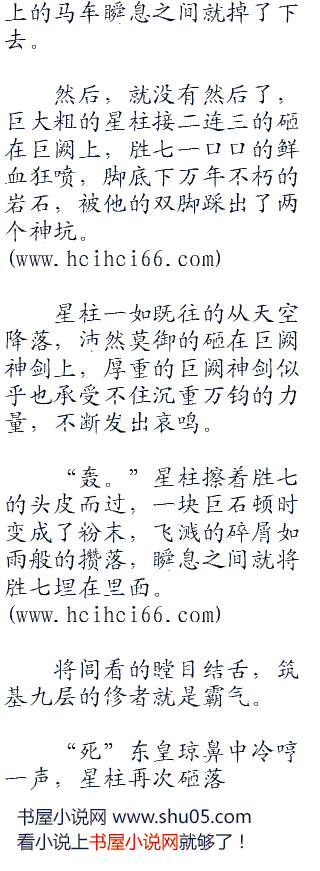 上的马车瞬息之间就掉了下
去。
然后，就没有然后了，
巨大粗的星柱接二连三的砸
在巨阙上，胜七一口口的鲜
血狂喷，脚底下万年不朽的
岩石，被他的双脚踩出了两
个神坑。
(www.hcihci66.com)
星柱一如既往的从天空
降落，沛然莫御的砸在巨阙
神剑上，厚重的巨阙神剑似
乎也承受不住沉重万钧的力
量，不断发出哀鸣。
“轰。”星柱擦着胜七
的头皮而过，一块巨石顿时
变成了粉末，飞溅的碎屑如
雨般的攒落，瞬息之间就将
胜七埋在里面。
(www.hcihci66.com)
将闾看的瞠目结舌，筑
基九层的修者就是霸气。
“死”东皇琼鼻中冷哼
一声，星柱再次砸落
书屋小说网 www.shu05.com
看小说上书屋小说网就够了！